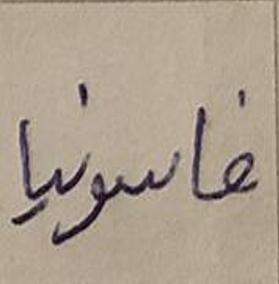 غاسونيا